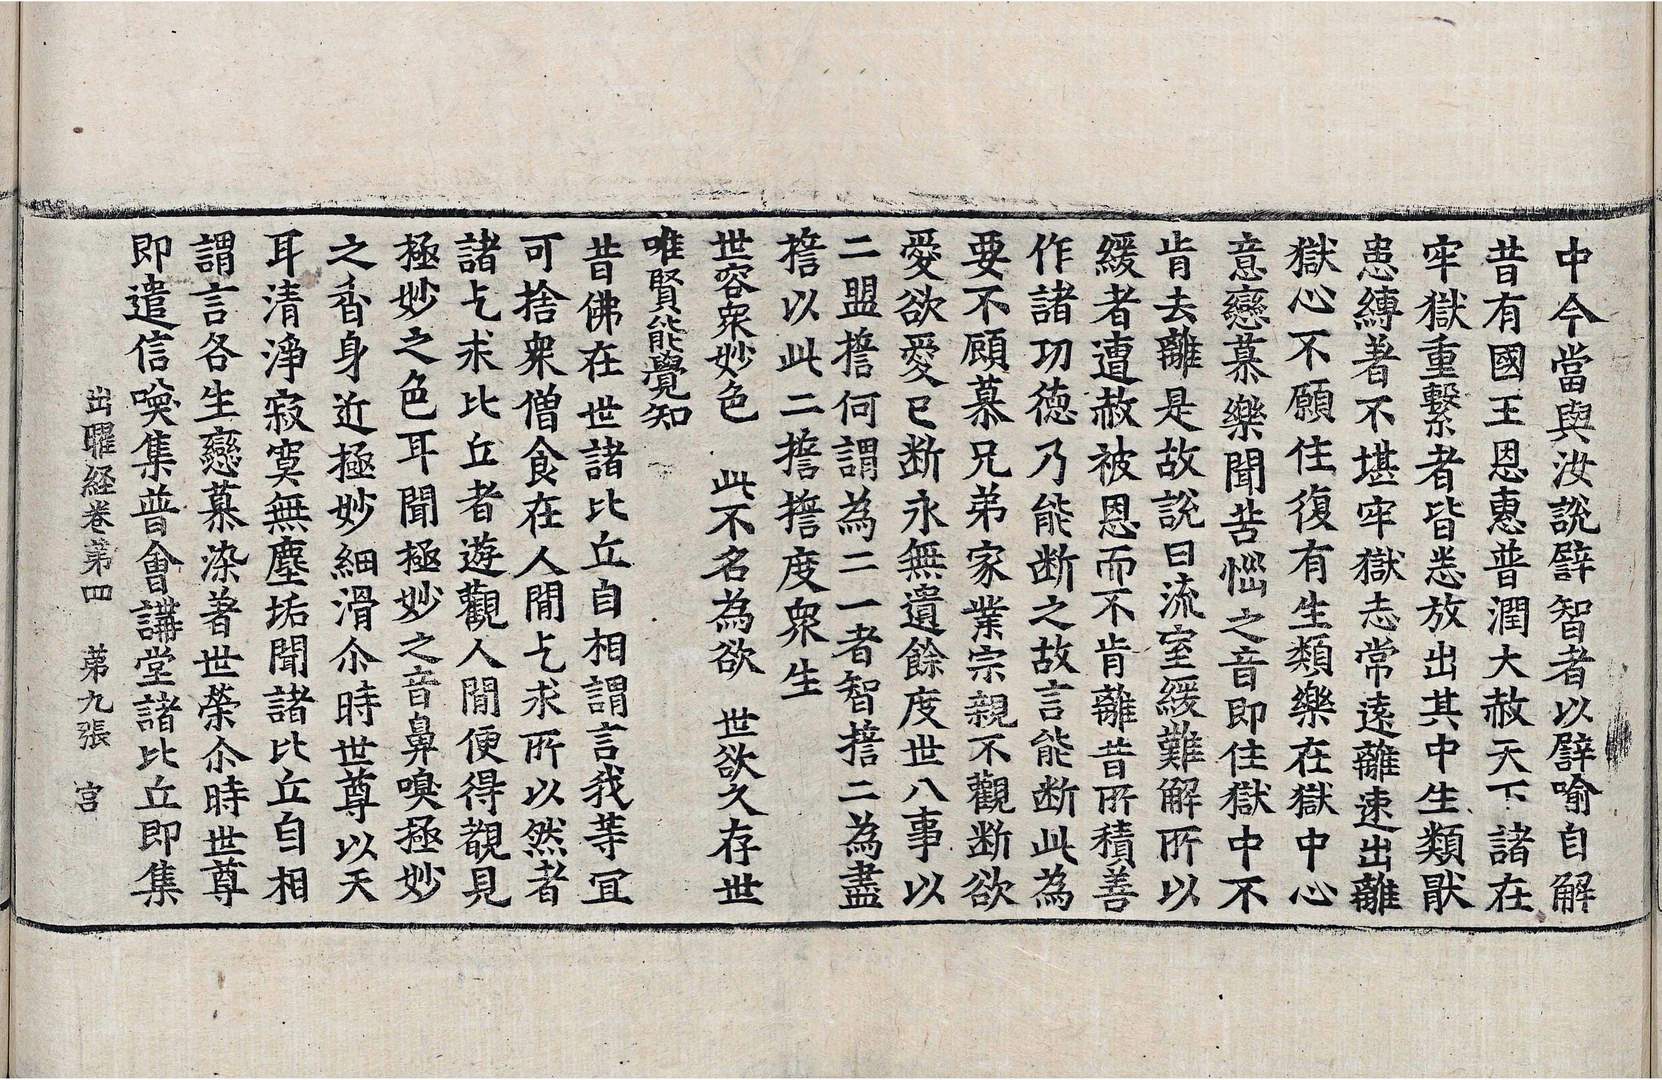 中今當與汝說譬智者以譬喻自解
昔有國王恩惠普潤大赦天下諸在
牢獄重繫者皆悉放出其中生類猒
患縛著不堪牢獄志常遠離速出離
獄心不願住復有生類樂在獄中心
意戀慕樂聞苦惱之音即住獄中不
肯去離是故說曰流室緩難解所以
緩者遭赦被恩而不肯離昔所積善
作諸功德乃能断之故言能断此為
要不顧慕兄弟家業宗親不觀断欲
愛欲愛已断永無遺餘度世八事以
二盟擔何謂為二一者智擔二為盡
擔以此二擔擔度衆生
世容衆妙色　此不名為欲　世欲久存世
唯賢能覺知
昔佛在世諸比丘自相謂言我等冝
可捨衆僧食在人閒乞求所以然者
諸乞求比丘者遊觀人閒便得覩見
極妙之色耳聞極妙之音鼻嗅極妙
之香身近極妙細滑尒時世尊以天
耳清淨寂寞無塵垢聞諸比丘自相
謂言各生戀慕染著世榮尒時世尊
即遣信喚集普會講堂諸比丘即集
出曜経卷第四　第九張　宫